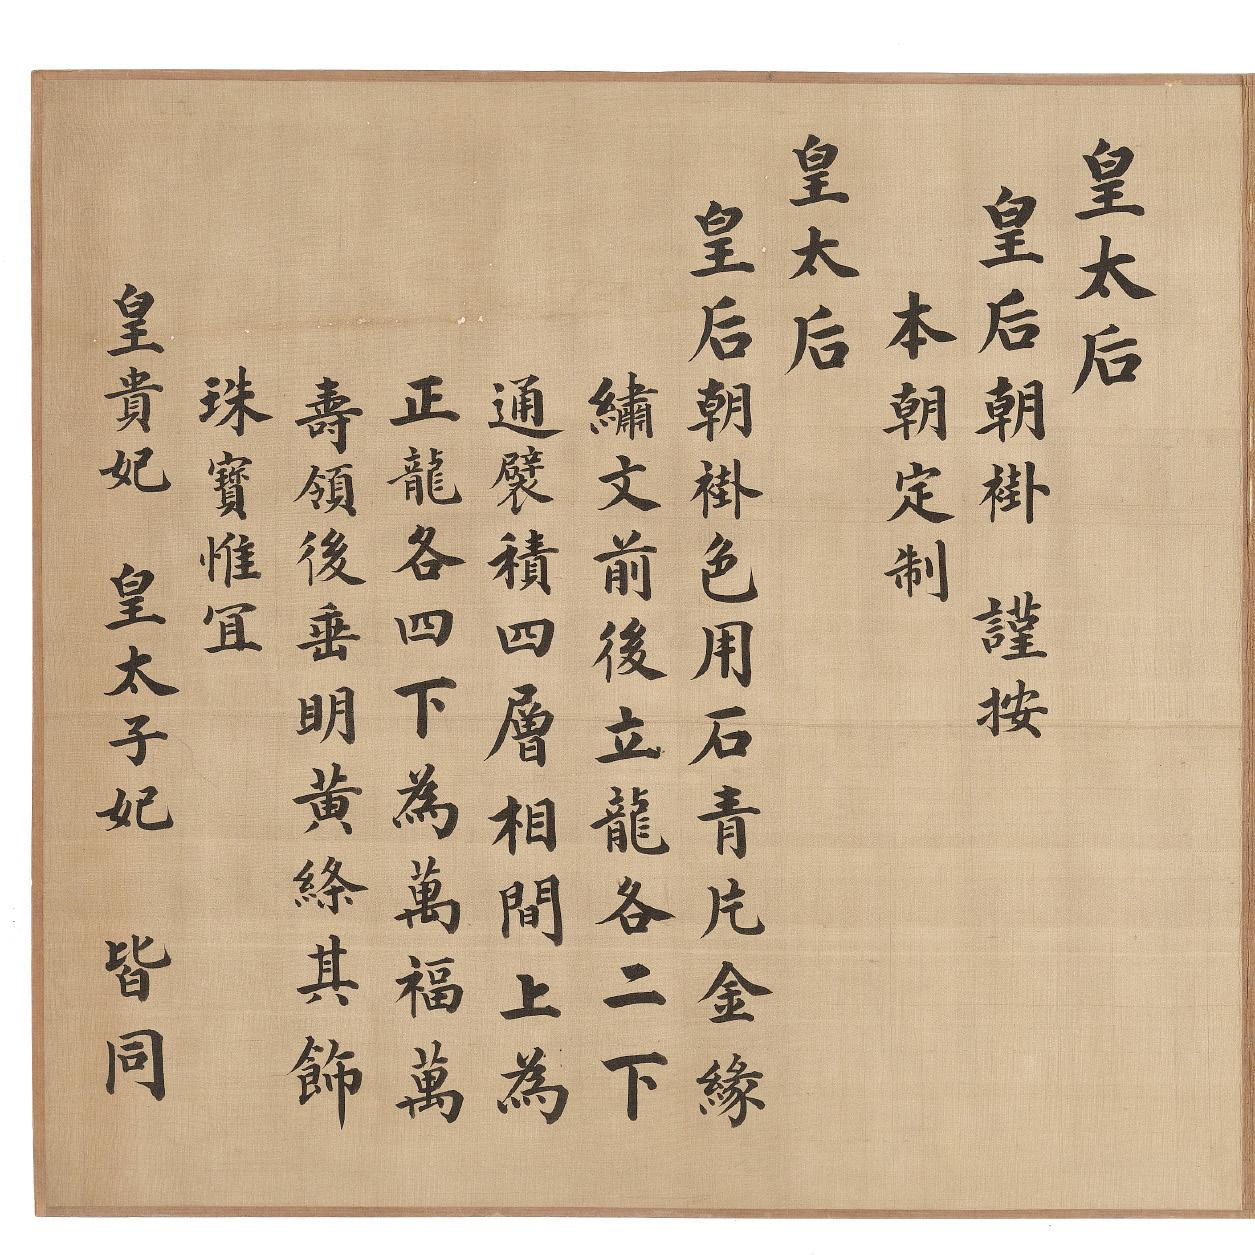 皇太后
皇后朝褂　謹按
本朝定制
皇太后
皇后朝褂色用石青片金緣
繡文前後立龍各二下
通襞積四層相間上為
正龍各四下為萬福萬
壽領後垂明黃絛其飾
珠寶惟宜
皇貴妃　皇太子妃　皆同